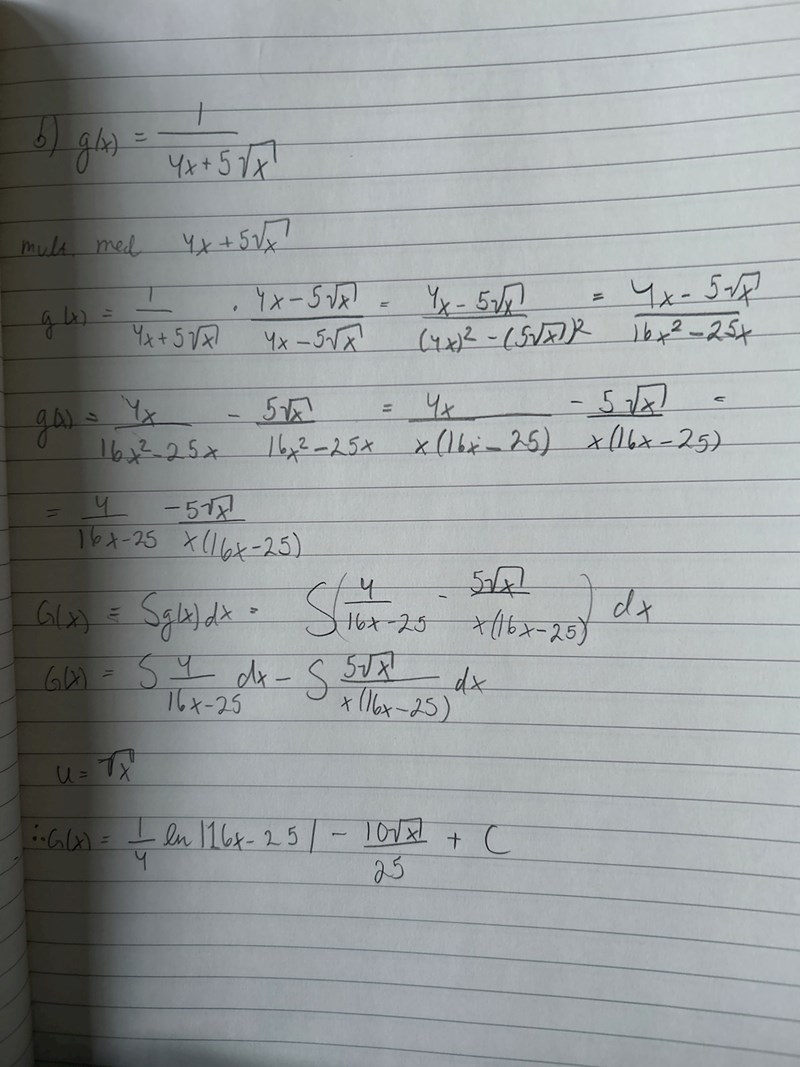 b) g(x) = 1/(4x + 5√x)
mult. med 4x + 5√x
g(x) = 1/(4x + 5√x) · (4x − 5√x)/(4x − 5√x) = (4x − 5√x)/((4x)² − (5√x)²) = (4x − 5√x)/(16x² − 25x)
g(x) = 4x/(16x² − 25x) − 5√x/(16x² − 25x) = 4x/(x(16x − 25)) − 5√x/(x(16x − 25)) =
= 4/(16x − 25) − 5√x/(x(16x − 25))
G(x) = ∫g(x)dx = ∫(4/(16x − 25) − 5√x/(x(16x − 25))) dx
G(x) = ∫ 4/(16x − 25) dx − ∫ 5√x/(x(16x − 25)) dx
u = √x
∴ G(x) = 1/4 ln |16x − 25| − 10√x/25 + C